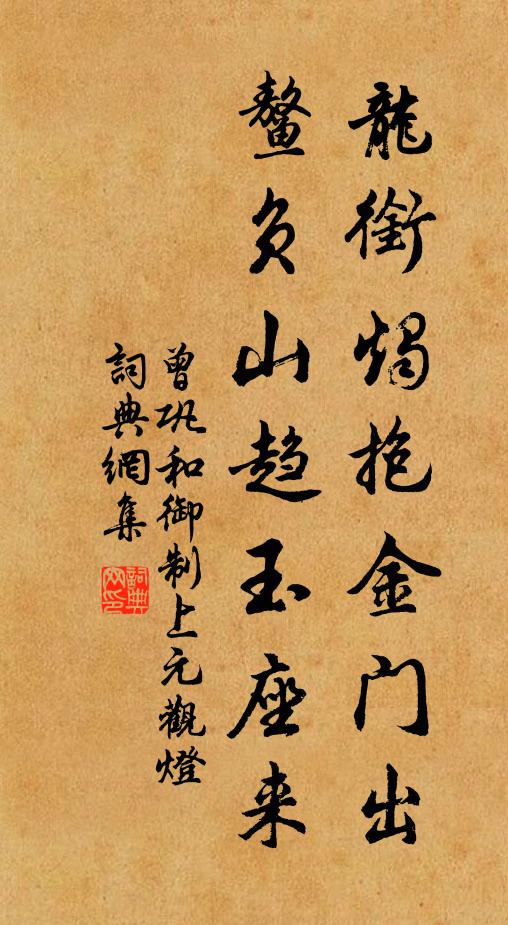 龍銜燭抱金门出
鼇负山趋玉座来
曾巩和御制上元觀燈
詞典網集
詞典网印